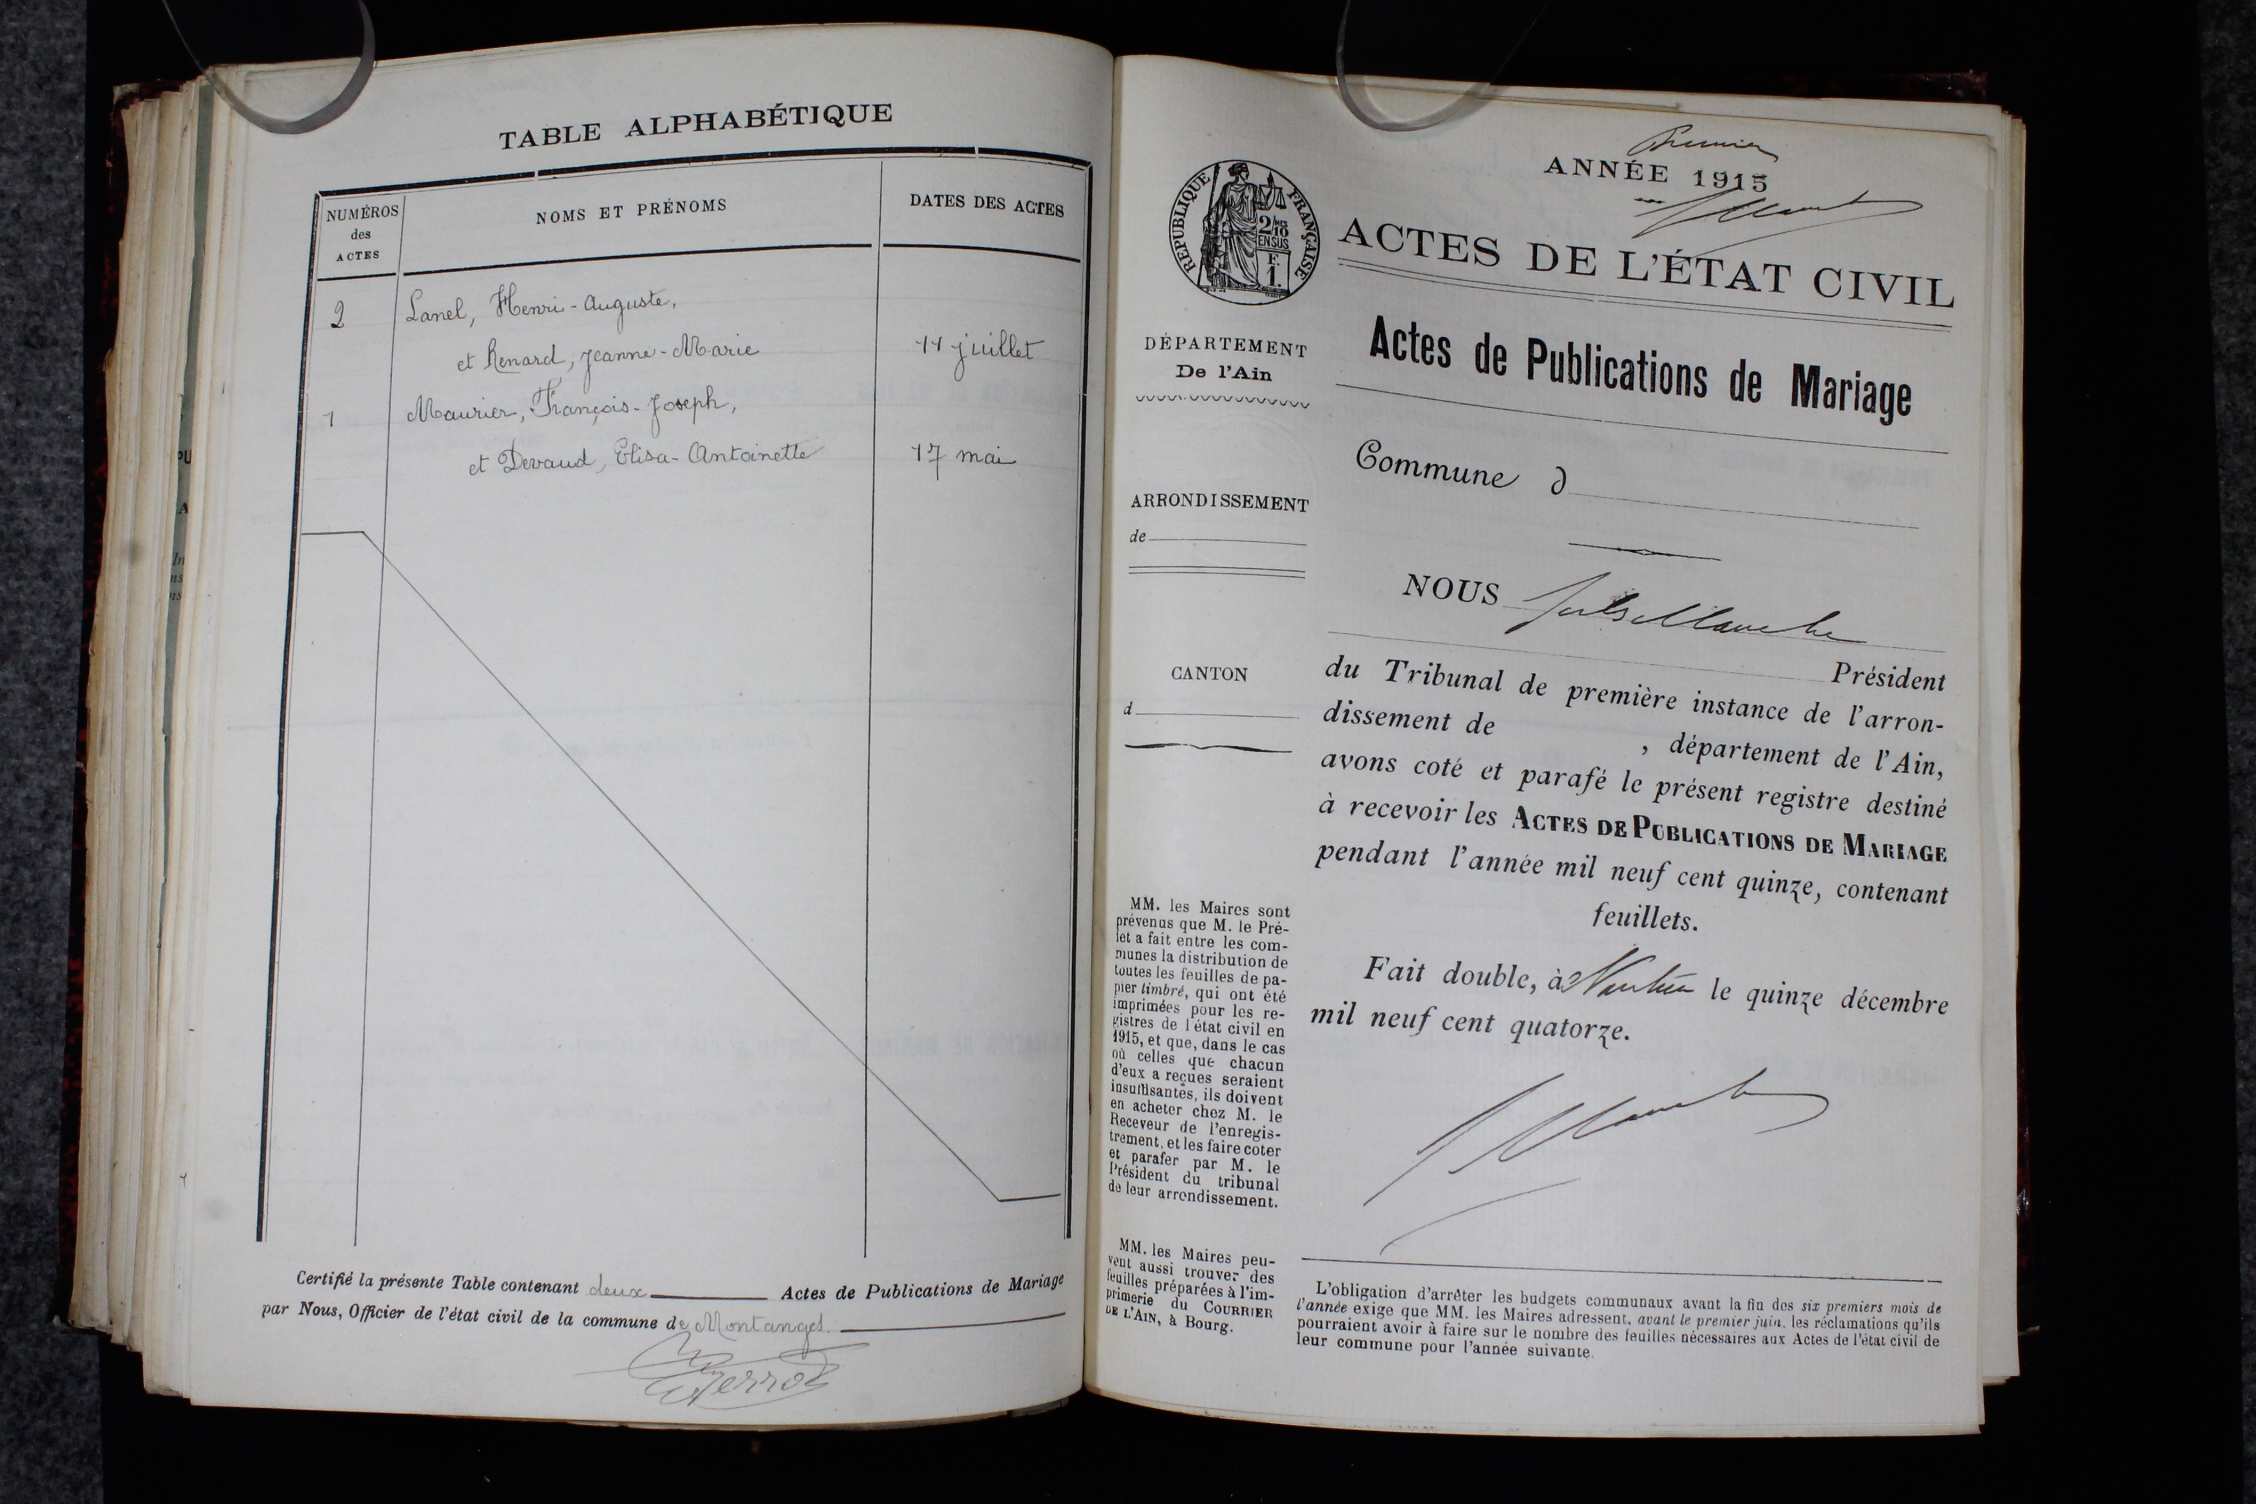 TABLE ALPHABÉTIQUE
NUMÉROS
des
ACTES
NOMS ET PRÉNOMS
DATES DES ACTES
2 Lanel, Henri-Auguste,
et Renard, Jeanne-Marie 11 juillet
1 Maurier, François-Joseph,
et Devaud, Elisa-Antoinette 17 mai
Certifié la présente Table contenant deux Actes de Publications de Mariage
par Nous, Officier de l'état civil de la commune de Montanges.
Premier
ANNÉE 1915
RÉPUBLIQUE FRANÇAISE
2/10
EN SUS
F.
1.
ACTES DE L'ÉTAT CIVIL
DÉPARTEMENT
De l'Ain
ARRONDISSEMENT
de
CANTON
d
MM. les Maires sont
prévenus que M. le Pré-
fet a fait entre les com-
munes la distribution de
toutes les feuilles de pa-
pier timbré, qui ont été
imprimées pour les re-
gistres de l'état civil en
1915, et que, dans le cas
où celles que chacun
d'eux a reçues seraient
insuffisantes, ils doivent
en acheter chez M. le
Receveur de l'enregis-
trement, et les faire coter
et parafer par M. le
Président du tribunal
de leur arrondissement.
MM. les Maires peu-
vent aussi trouver des
feuilles préparées à l'im-
primerie du COURRIER
DE L'AIN, à Bourg.
Actes de Publications de Mariage
Commune d
NOUS Jules
Président
du Tribunal de première instance de l'arron-
dissement de , département de l'Ain,
avons coté et parafé le présent registre destiné
à recevoir les ACTES DE PUBLICATIONS DE MARIAGE
pendant l'année mil neuf cent quinze, contenant
feuillets.
Fait double, à Nantua le quinze décembre
mil neuf cent quatorze.
L'obligation d'arrêter les budgets communaux avant la fin des six premiers mois de
l'année exige que MM. les Maires adressent, avant le premier juin, les réclamations qu'ils
pourraient avoir à faire sur le nombre des feuilles nécessaires aux Actes de l'état civil de
leur commune pour l'année suivante.